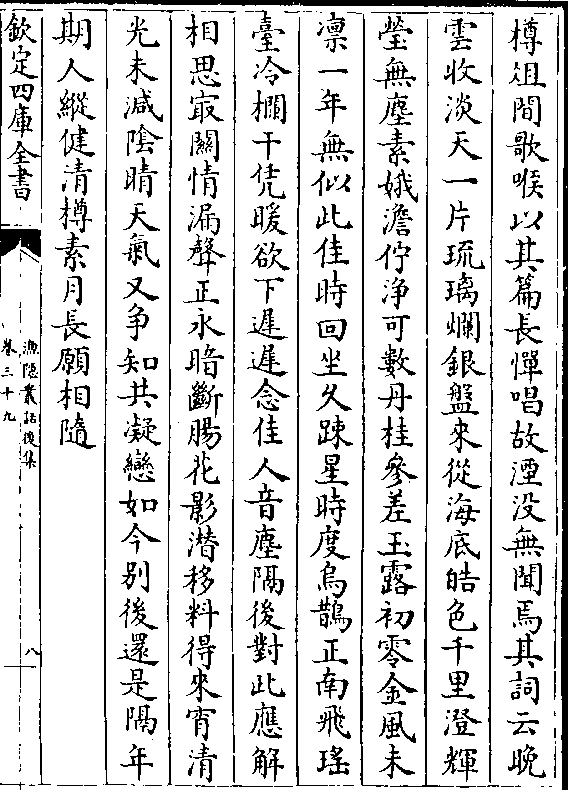 樽俎間歌喉以其篇長憚唱故湮没無聞焉其詞云晚
雲收淡天一片琉璃爛銀盤來從海底皓色千里澄輝
瑩無塵素娥澹佇净可數丹桂參差玉露初零金風未
凛一年無似此佳時回坐久踈星時度烏鵲正南飛瑤
臺冷欄干凭暖欲下遲遲念佳人音塵隔後對此應解
相思㝡關情漏聲正永暗斷腸花影潛移料得來宵清
光未減陰晴天氣又争知共凝戀如今别後還是隔年
期人縱健清樽素月長願相隨
欽定四庫全書
漁隠叢話後集
卷三十九
八